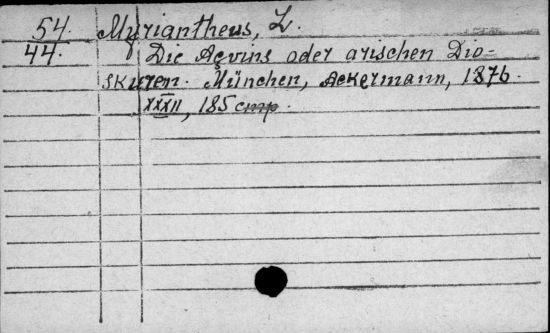 54. Myriantheus, L.
44. Die Açvins oder arischen Dio-
skuren. München, Ackermann, 1876.
XXXII, 185 стр.